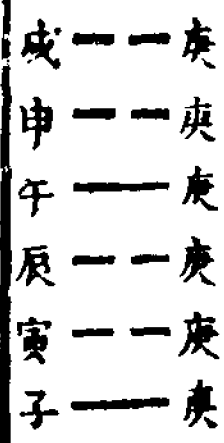 戌 庚
申 庚
午 庚
辰 庚
寅 庚
子 庚